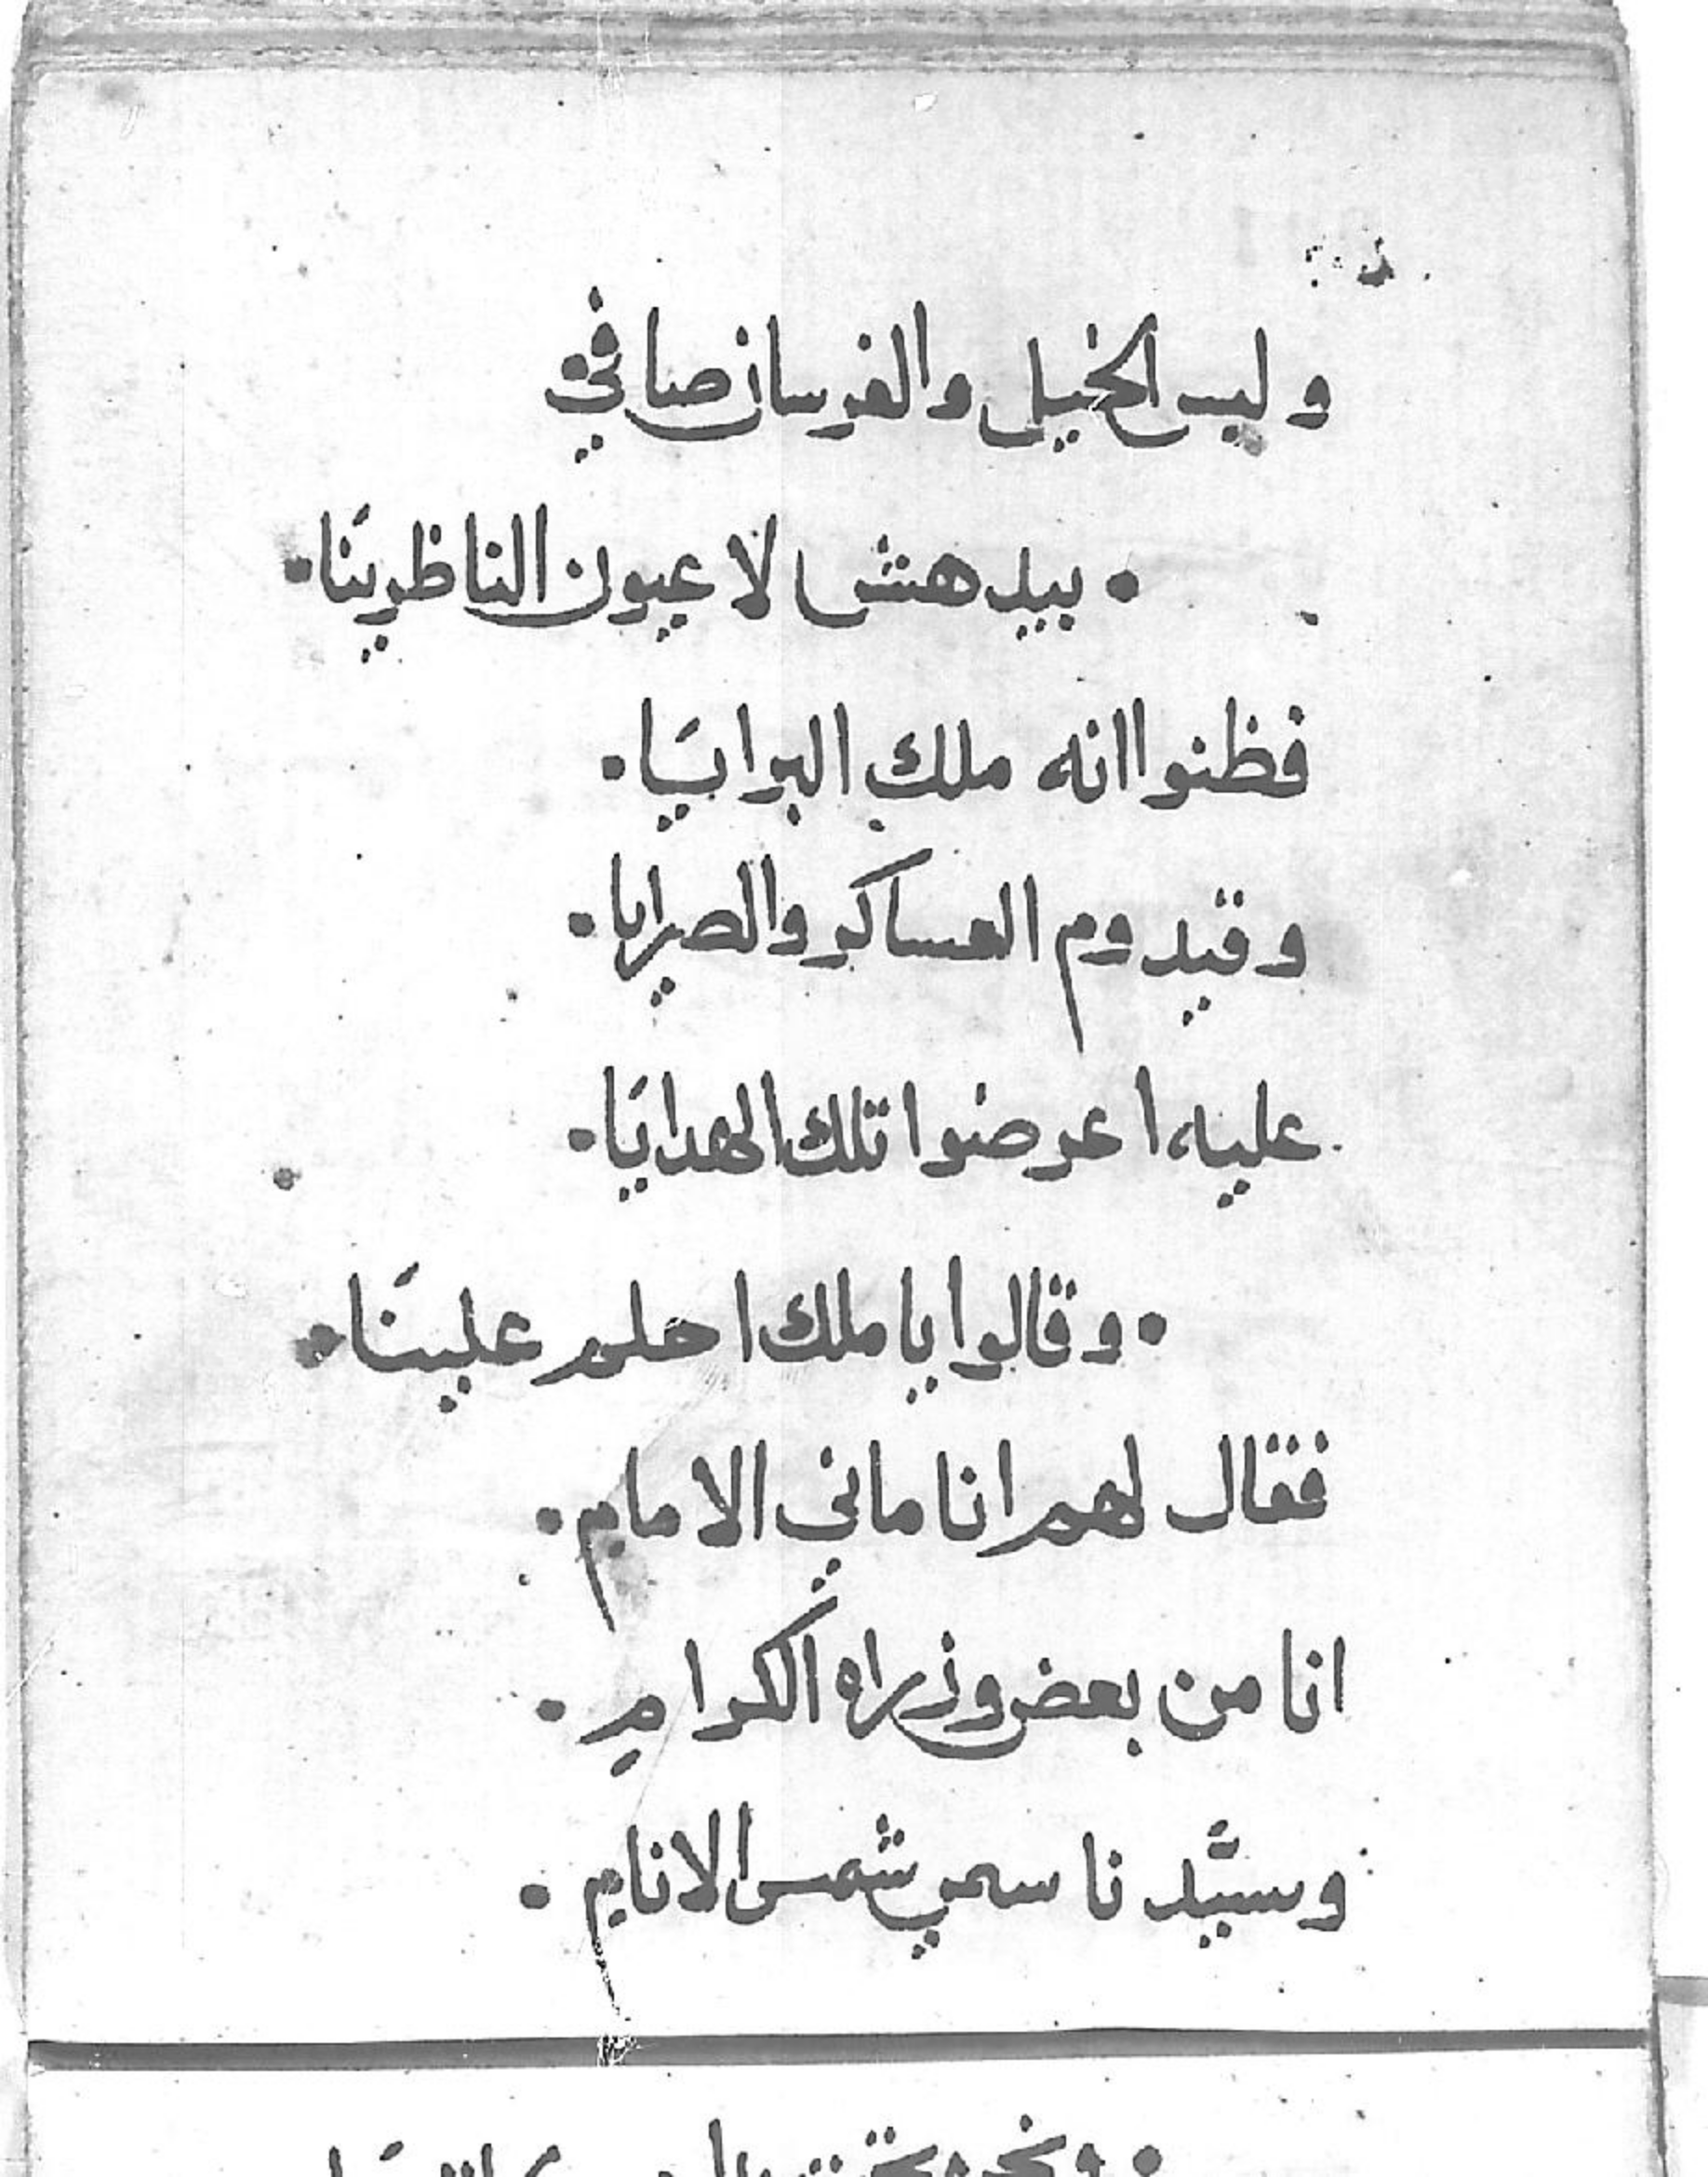 وليس الخيل والفرسان صافي
• بيدهش لا عيون الناظرينَا •
فظنوا انه ملكِ البرايَا •
وقيدوم العساكر والصرايا •
عليه اعرضوا تلك الهدايَا •
• وقالوا يا ملك احلم علينَا •
فقال لهم انا ماني الامام •
انا من بعض وزراه الكرامِ •
وسيَّدنا سمي شمس الانام •